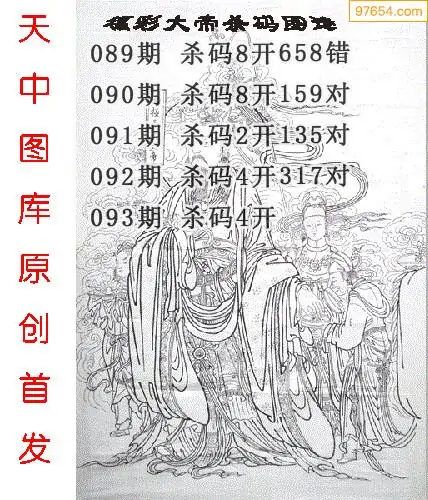 97654.com
福彩大帝杀码图迷
089期 杀码8开658错
090期 杀码8开159对
091期 杀码2开135对
092期 杀码4开317对
093期 杀码4开
天中图库原创首发